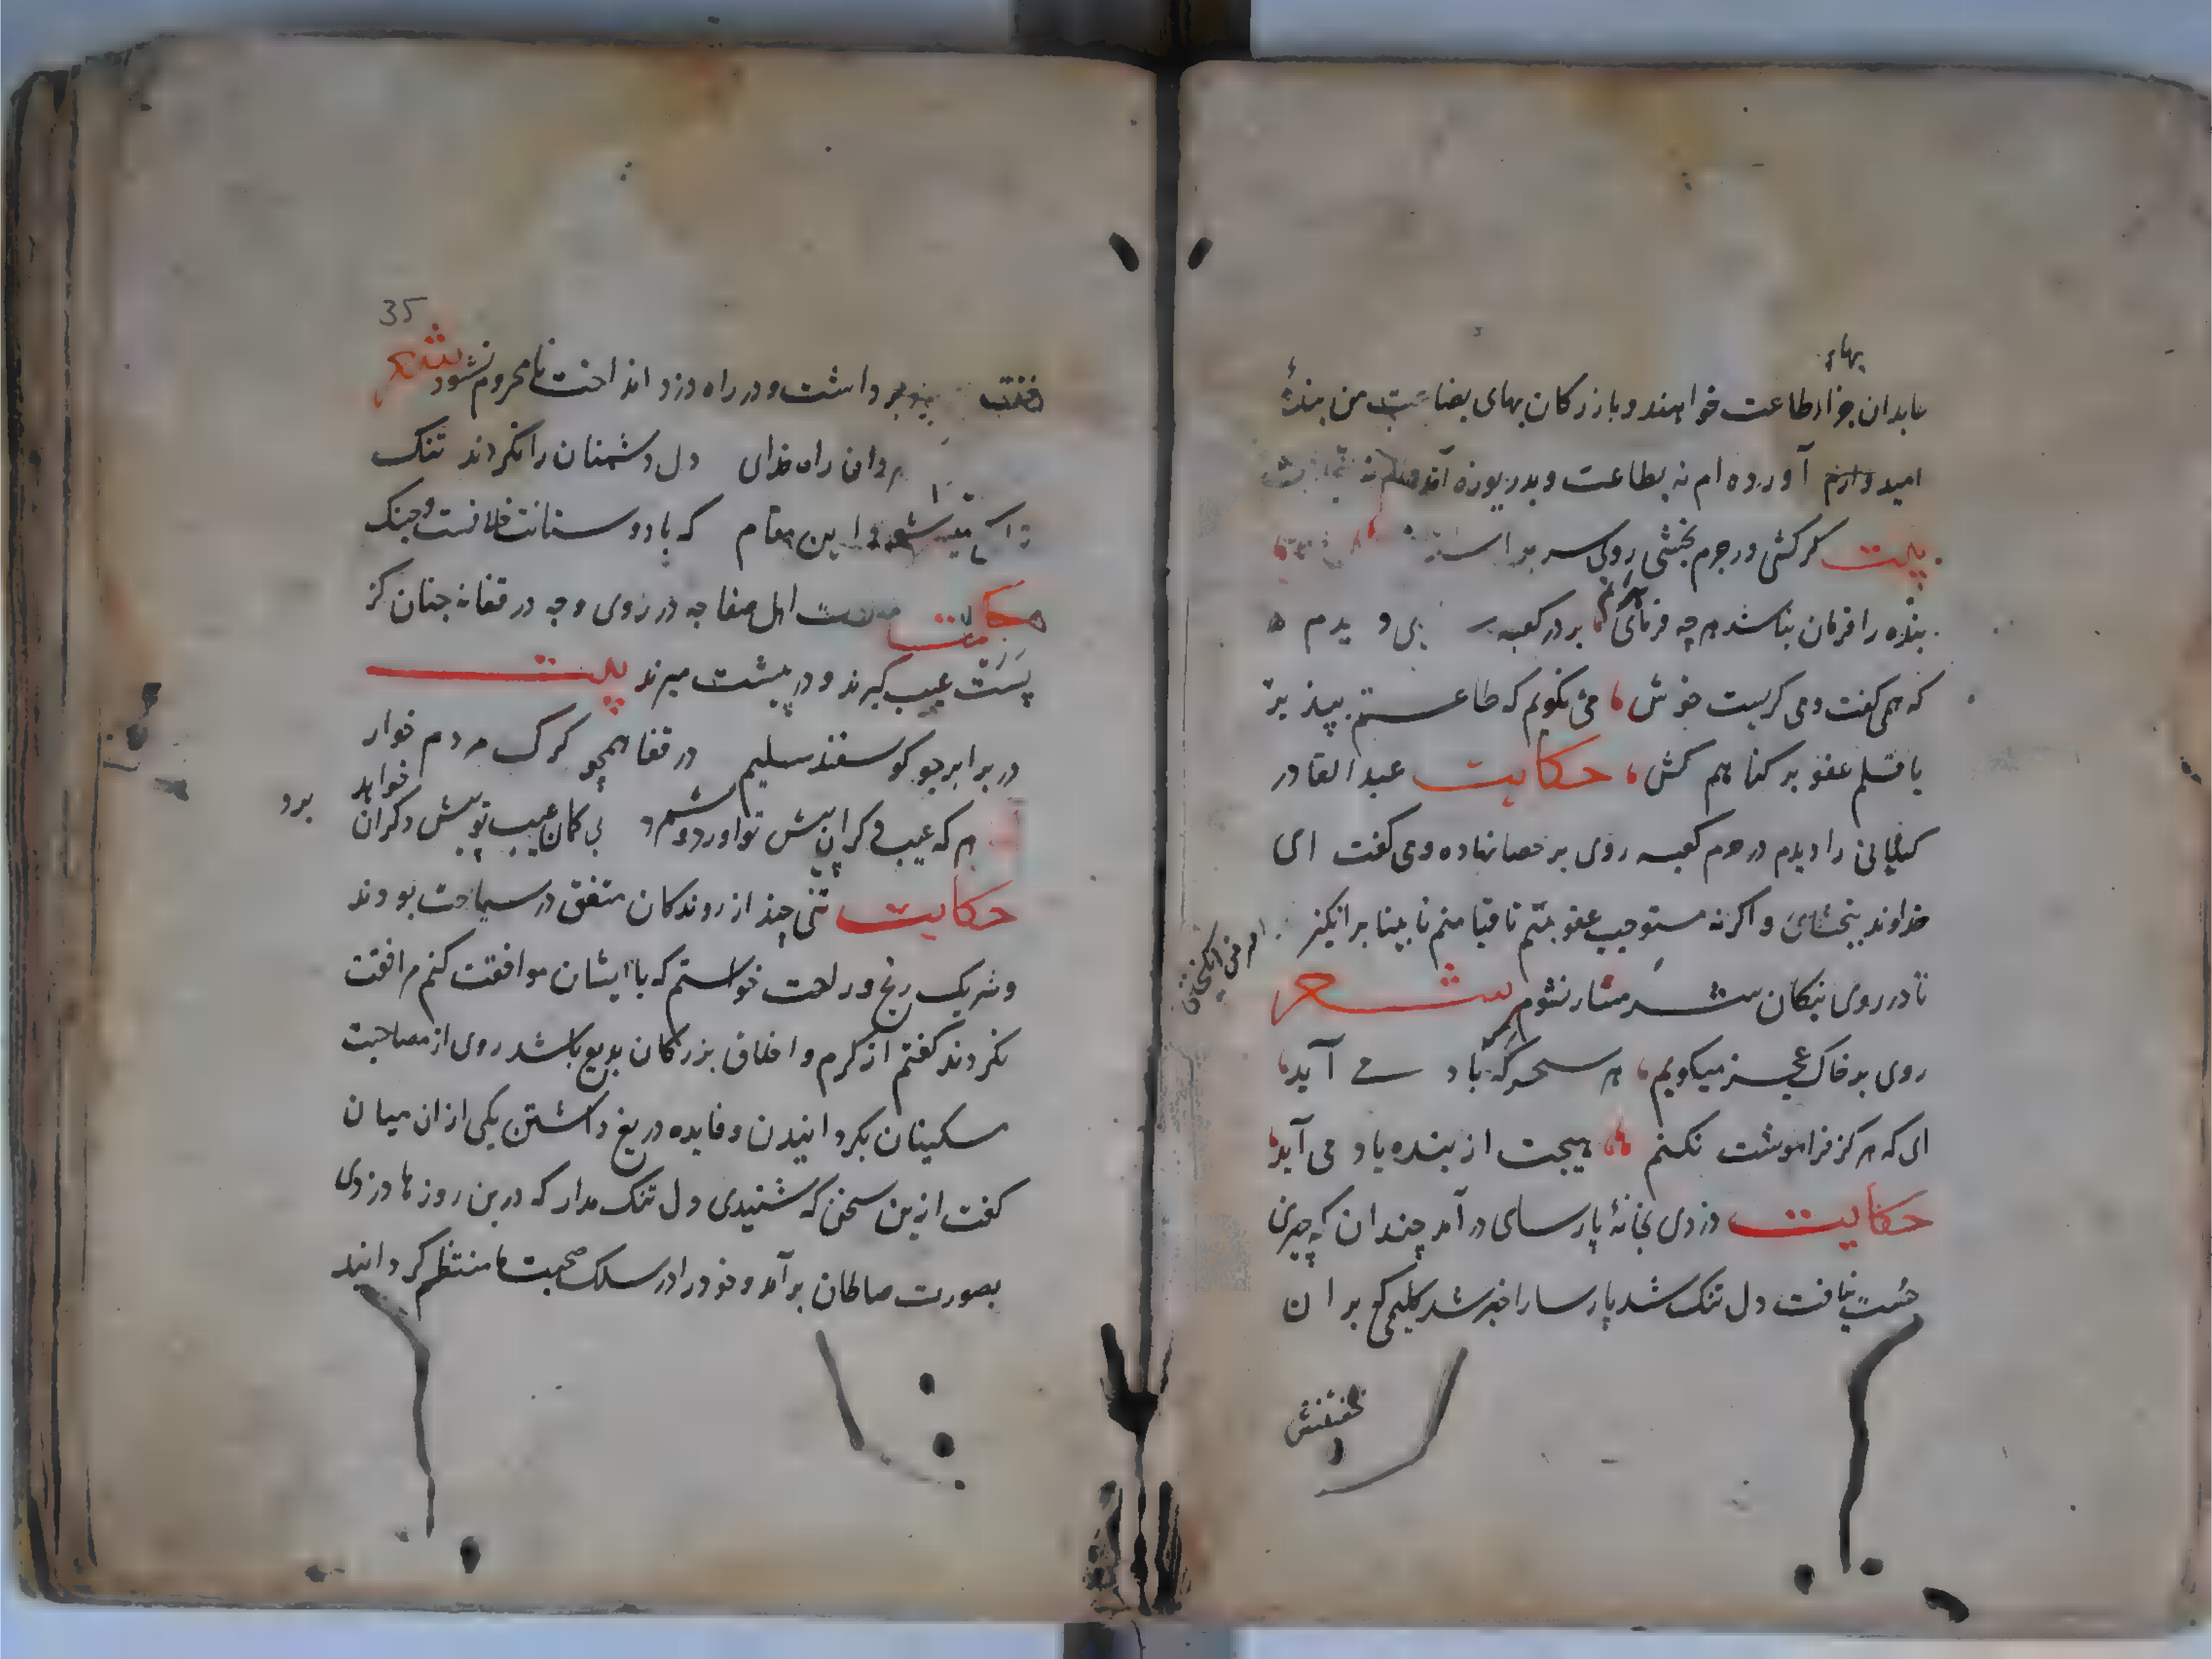 بهای
عابدان جزاء طاعت خواهند و بازرکان بهای بضاعت من بندهٔ
امید آورده ام نه بطاعت و بدریوزه آمده ام نه بتجارت
بیت کر کشی ور جرم بخشی روی سر بر
بنده را فرمان نباشد هر چه فرمای برانم بر در کعبه
که همی کفت و می کریست خوش می نکویم که طاعتم بپذیر
یا قلم عفو بر کناهم کش حکایت عبد القادر
کیلانی را دیدم در حرم کعبه روی بر حصا نهاده و می کفت ای
خداوند ببخشای و اکرنه مستوجب عقوبتم تا قیامتم نابینا بر انکیز
تا در روی نیکان شرمسار نشوم شعر
روی بر خاک عجز میکویم هر سحرکه که باد می آید
ای که هرکز فراموشت نکنم هیچت از بنده یاد می آید
حکایت دزدی بخانهٔ پارسای در آمد چندان که چیزی
جست نیافت دل تنک شد پارسا را خبر شد کلیمی که بر ان
خفتنش
35
خفته بود برداشت و در راه دزد انداخت تا محروم نشود شعر
مردان راه خدای دل دشمنان را نکردند تنک
میسر شود این مقام که با دوستانت خلافست و جنک
حکایت مودت اهل صفا چه در روی و چه در قفا نه چنان کز
پست عیب کیرند و در پیشت میرند بیت
در برابر چو کوسفند سلیم در قفا همچو کرک مردم خوار
هر که عیب دکران پیش تو آورد و شمرد بی کمان عیب تو پیش دکران خواهد برد
حکایت تنی چند از روندکان متفق در سیاحت بودند
و شریک رنج و راحت خواستم که با ایشان موافقت کنم مرافقت
نکردند کفتم از کرم و اخلاق بزرکان بدیع باشد روی از مصاحبت
مسکینان بکردانیدن و فایده دریغ داشتن یکی از ان میان
کفت ازین سخن که شنیدی دل تنک مدار که درین روزها دزدی
بصورت صالحان برآمد و خود را در سلک صحبت ما منتظم کردانید